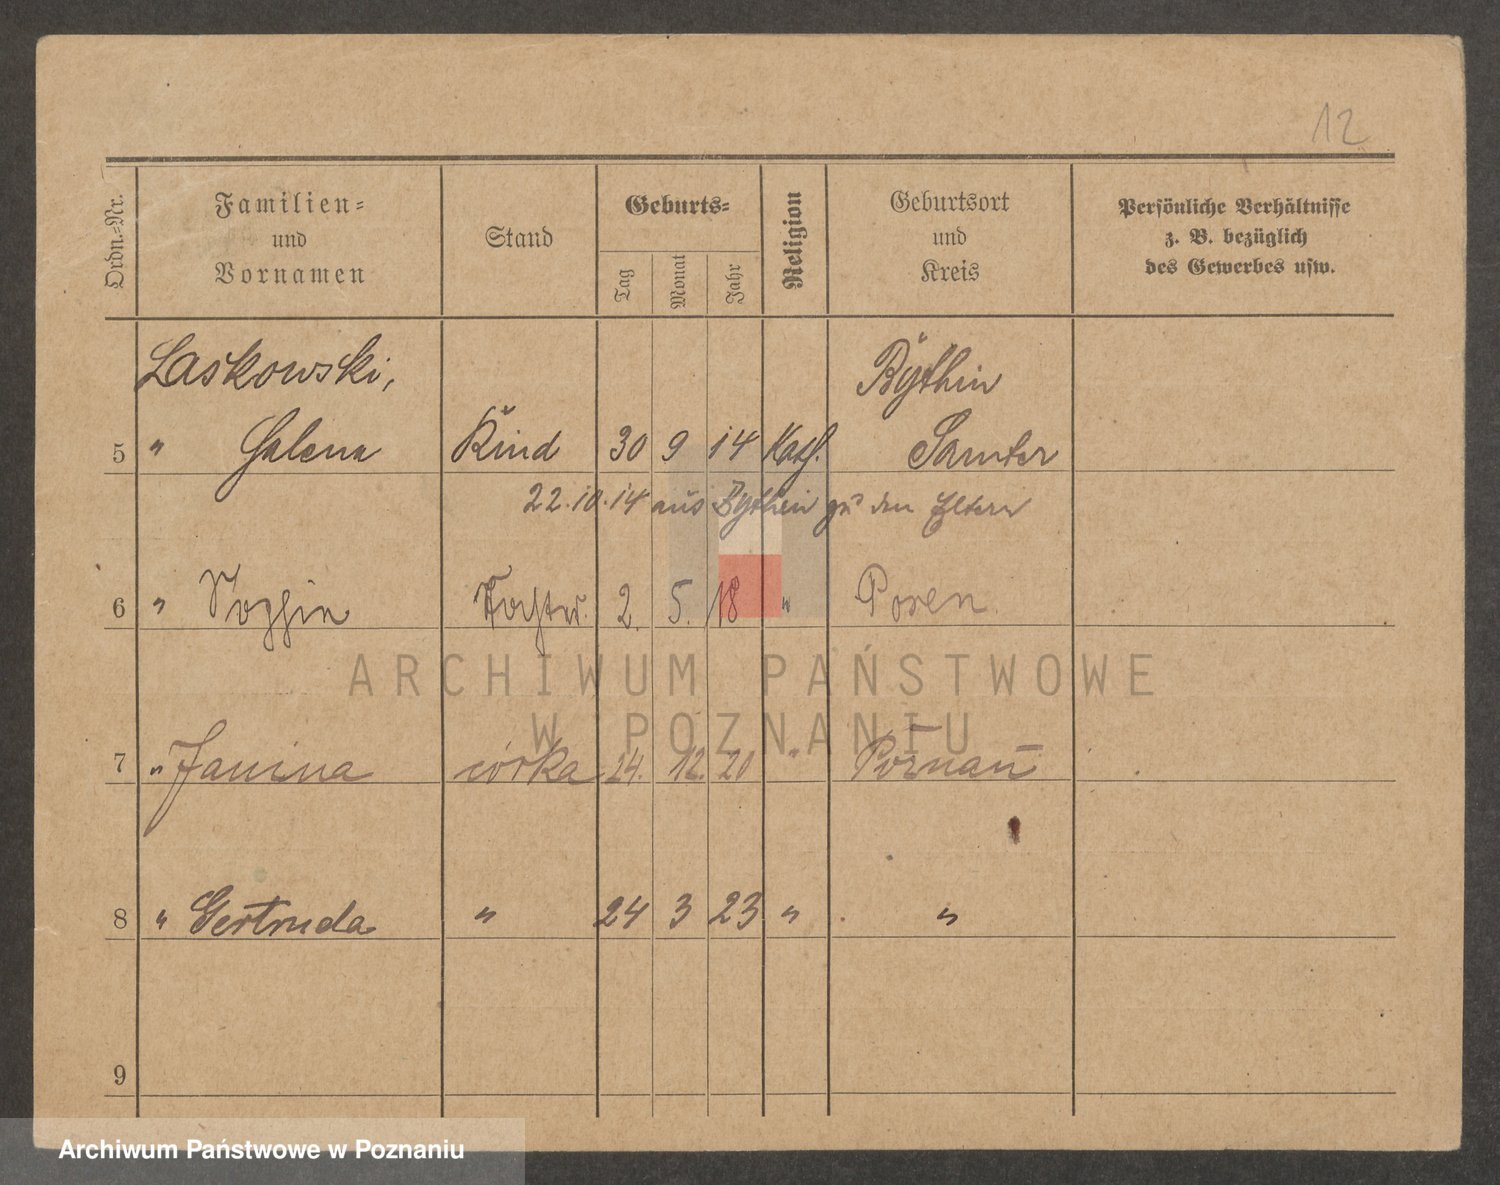 12
Ordn.-Nr.
Familien-
und
Vornamen
Stand
Geburts-
Tag
Monat
Jahr
Religion
Geburtsort
und
Kreis
Persönliche Verhältnisse
z. B. bezüglich
des Gewerbes usw.
Laskowski, Bythin
5 " Halena Kind 30 9 14 Kath. Samter
22.10.14 aus Bythin zu den Eltern
6 " Sophie Tochter. 2. 5. 18 " Posen.
ARCHIWUM PAŃSTWOWE
W POZNANIU
7 " Janina córka 24. 12. 20 " Poznań
8 " Gertruda " 24 3 23 " "
9
Archiwum Państwowe w Poznaniu